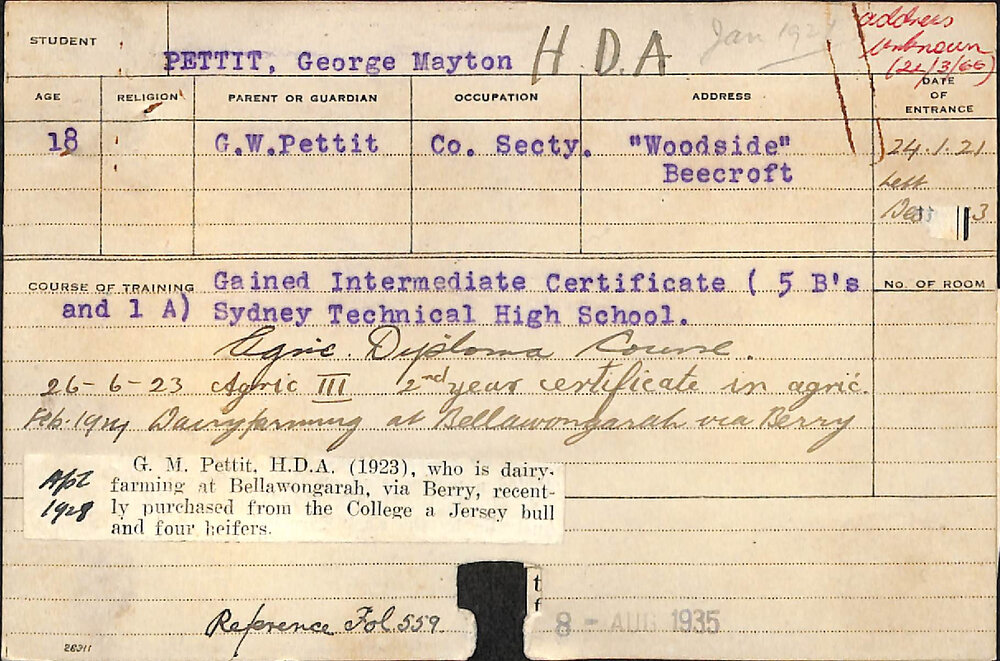 STUDENT
PETTIT, George Mayton
H.D.A
Jan 1924
address
unknown
(21/3/66)
AGE
RELIGION
PARENT OR GUARDIAN
OCCUPATION
ADDRESS
DATE
OF
ENTRANCE
18
G.W.Pettit
Co. Secty.
"Woodside"
Beecroft
24.1.21
Left
Dec
3
COURSE OF TRAINING Gained Intermediate Certificate ( 5 B's
and 1 A) Sydney Technical High School.
No. OF ROOM
Agric. Diploma Course.
26-6-23 Agric III 2nd year certificate in agric.
Feb. Dairyfarming at Bellawongarah via Berry
1928
G. M. Pettit, H.D.A. (1923), who is dairy-
farming at Bellawongarah, via Berry, recent-
ly purchased from the College a Jersey bull
and four heifers.
t
f
Reference Fol 559
8 - AUG 1935
26311